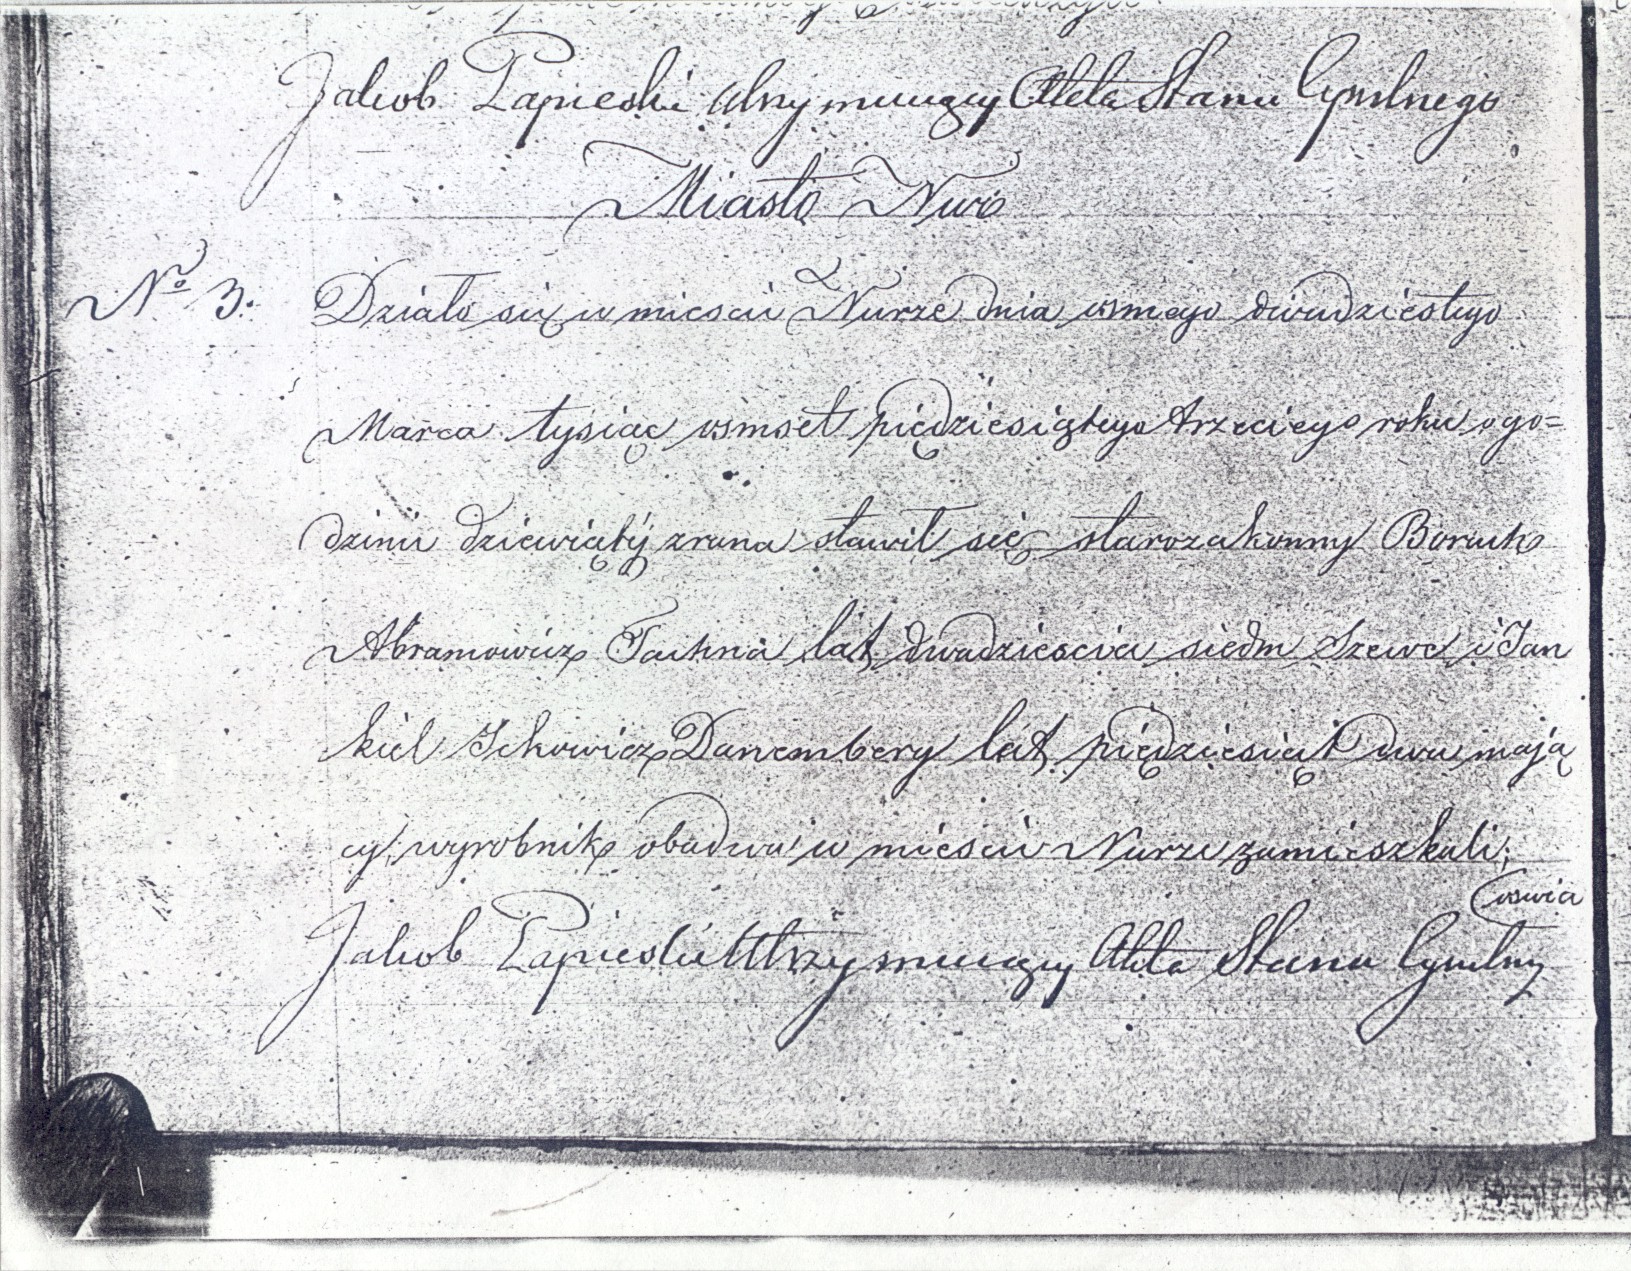 Jakob Łapieski utrzymuiący Akta Stanu Cywilnego
Miasto Nur
No 3. Działo się w miescie Nurze dnia osmego dwudziestego
Marca tysiąc osmset pięćdziesiątego trzeciego roku o go=
dzinie dziewiąty zrana stawił się starozakonny Boruch
Abramowicz lat dwadziescia siedm Szewc i Jan
kiel Ickowicz Danemberg lat pięcdziesiąt dwa mają
cy, wyrobnik obadwa w miescie Nurze zamieszkali;
oswia
Jakob Łapieski Utrzymuiący Akta Stanu Cywilny